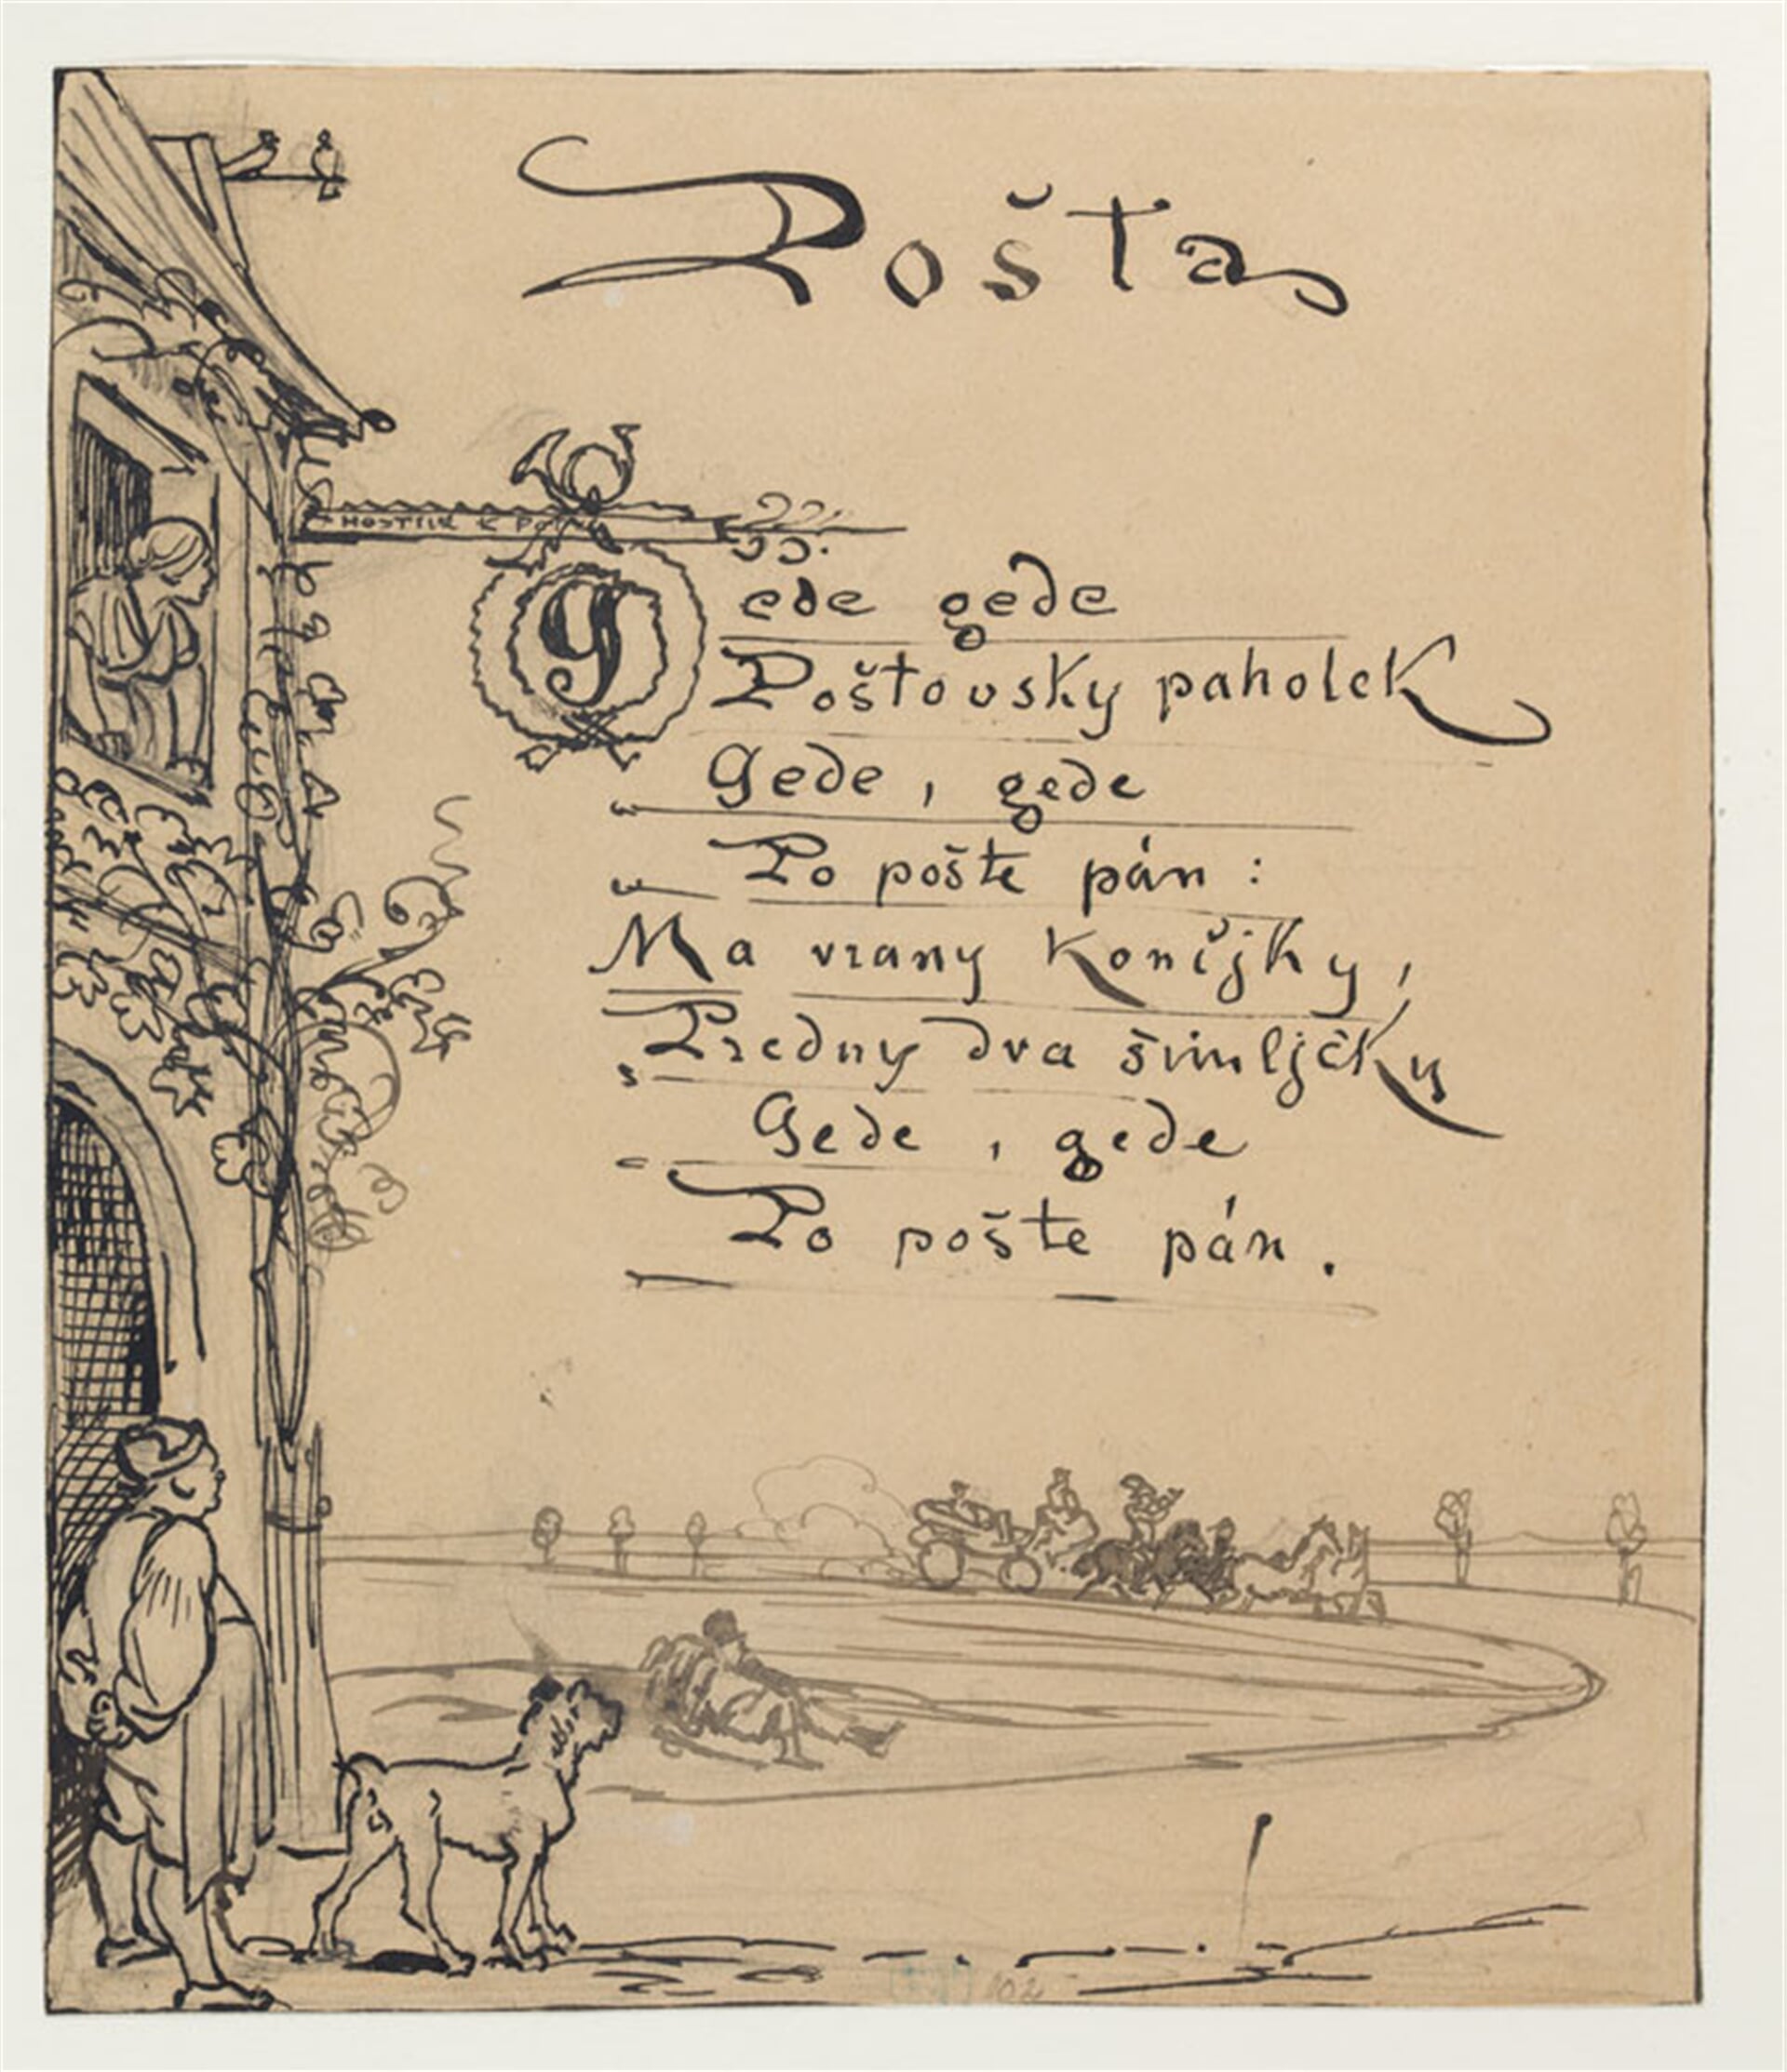 Pošta
HOSTIN K
Gede gede
Poštovsky paholek
Gede, gede
Po pošte pán:
Ma vrany koničjky,
Predny dva šimljčky
Gede, gede
Po pošte pán.
102